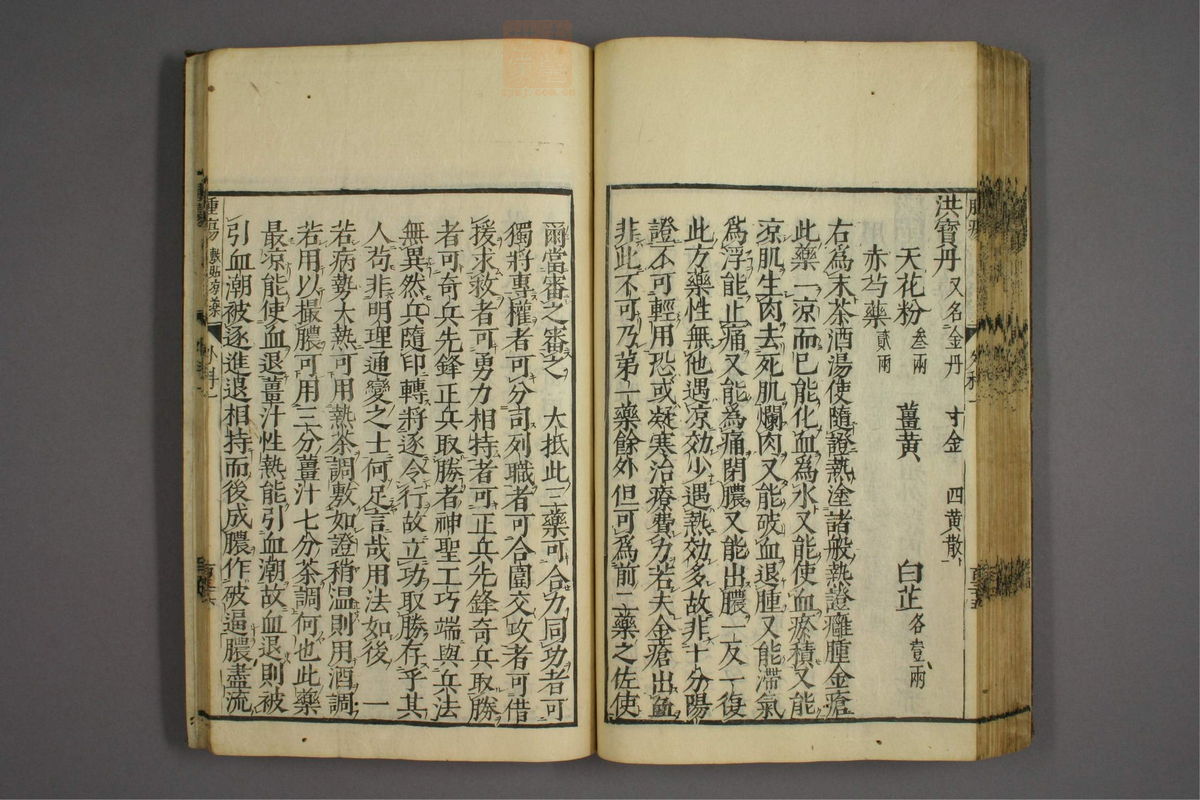 洪寶丹 又名金丹 寸金 四黃散
天花粉 叁兩 薑黃 白芷 各壹兩
赤芍藥 貳兩
右為末茶酒湯使隨證熱塗諸般熱證癰腫金瘡
此藥一凉而已能化血爲水又能使血瘀積又能
凉肌生肉去死肌爛肉又能破血退腫又能滯氣
爲浮能止痛又能為痛閉膿又能出膿一反一復
此方藥性無他遇凉効少遇熱効多故非十分陽
證不可輕用恐或凝寒治療費力若夫金瘡出血
非此不可乃第一藥餘外但可爲前二藥之佐使
爾當審之審之 大抵此三藥可合力同功者可
獨將專權者可分司列職者可合圍交攻者可借
援求救者可勇力相持者可正兵先鋒奇兵取勝
者可奇兵先鋒正兵取勝者神聖工巧端與兵法
無異然兵隨印轉將逐令行故立功取勝存乎其
人苟非明理通變之士何足言哉用法如後 一
若病勢大熱可用熱茶調敷如證稍温則用酒調
若用以撮膿可用三分薑汁七分茶調何也此藥
最凉能使血退薑汁性熱能引血潮故血退則被
引血潮被逐進退相持而後成膿作破逼膿盡流
腫瘍 敷貼凉藥 外科一